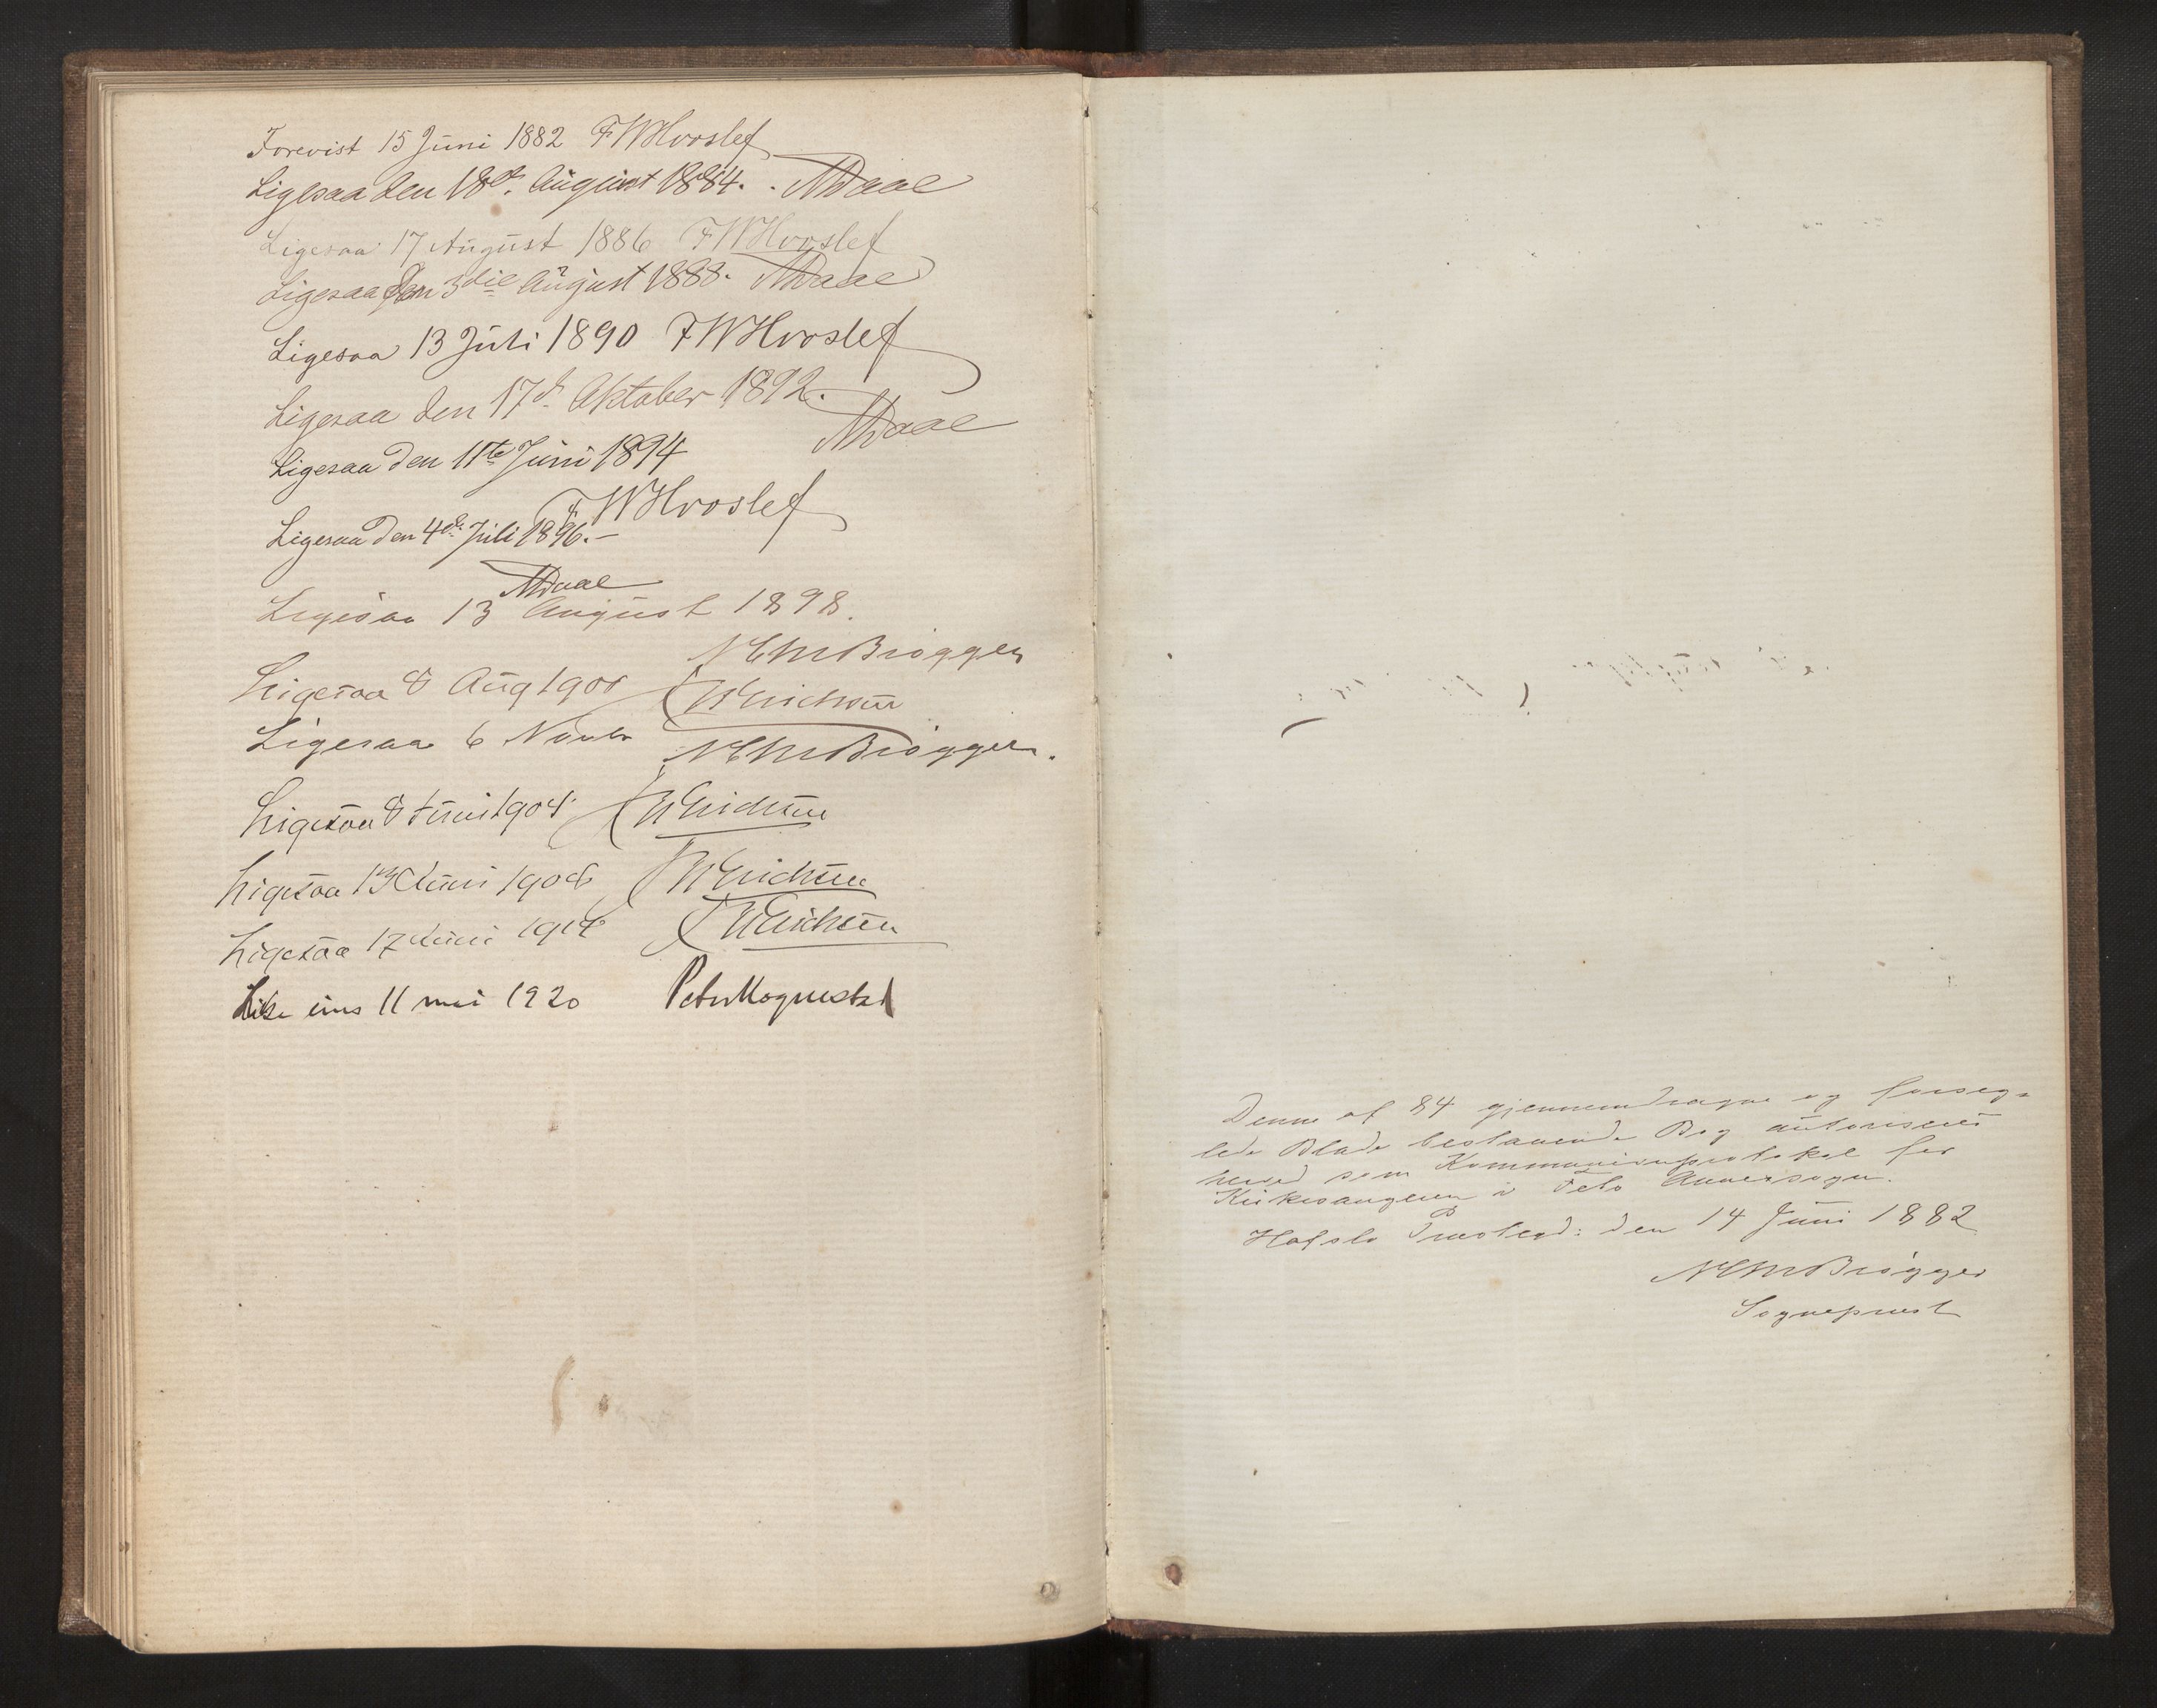 Forevist 15 Juni 1882 FWHvoslef
Ligesaa den 18de August 1884. ADaae
Ligesaa 17 August 1886 FWHvoslef
Ligesaa den 3die August 1888. ADaae
Ligesaa 13 Juli 1890 FWHvoslef
Ligesaa den 17de Oktober 1892.
ADaae
Ligesaa den 11te Juni 1894
FWHvoslef
Ligesaa den 4de Juli 1896.-
ADaae
Ligesaa 13 August 1898.
NEMBrøgger
Ligesaa 8 Aug 1900 Erichsen
Ligesaa 6 NEMBrøgger.
Ligesaa 8 Juni 1904 Erichsen
Ligesaa 13 Juni 1906 Erichsen
Ligesaa 17 Juni Erichsen
Like eins 11 mai 1920 Peter
Denne af 84 gjennemdragne og forseg-
lede Blade bestaaende Bog autoriseres
herved som Kommunionprotokol for
Kirkesangeren i Annexsogn.
Hafslo Præstegd: den 14 Juni 1882
NEMBrøgger
Sogneprest